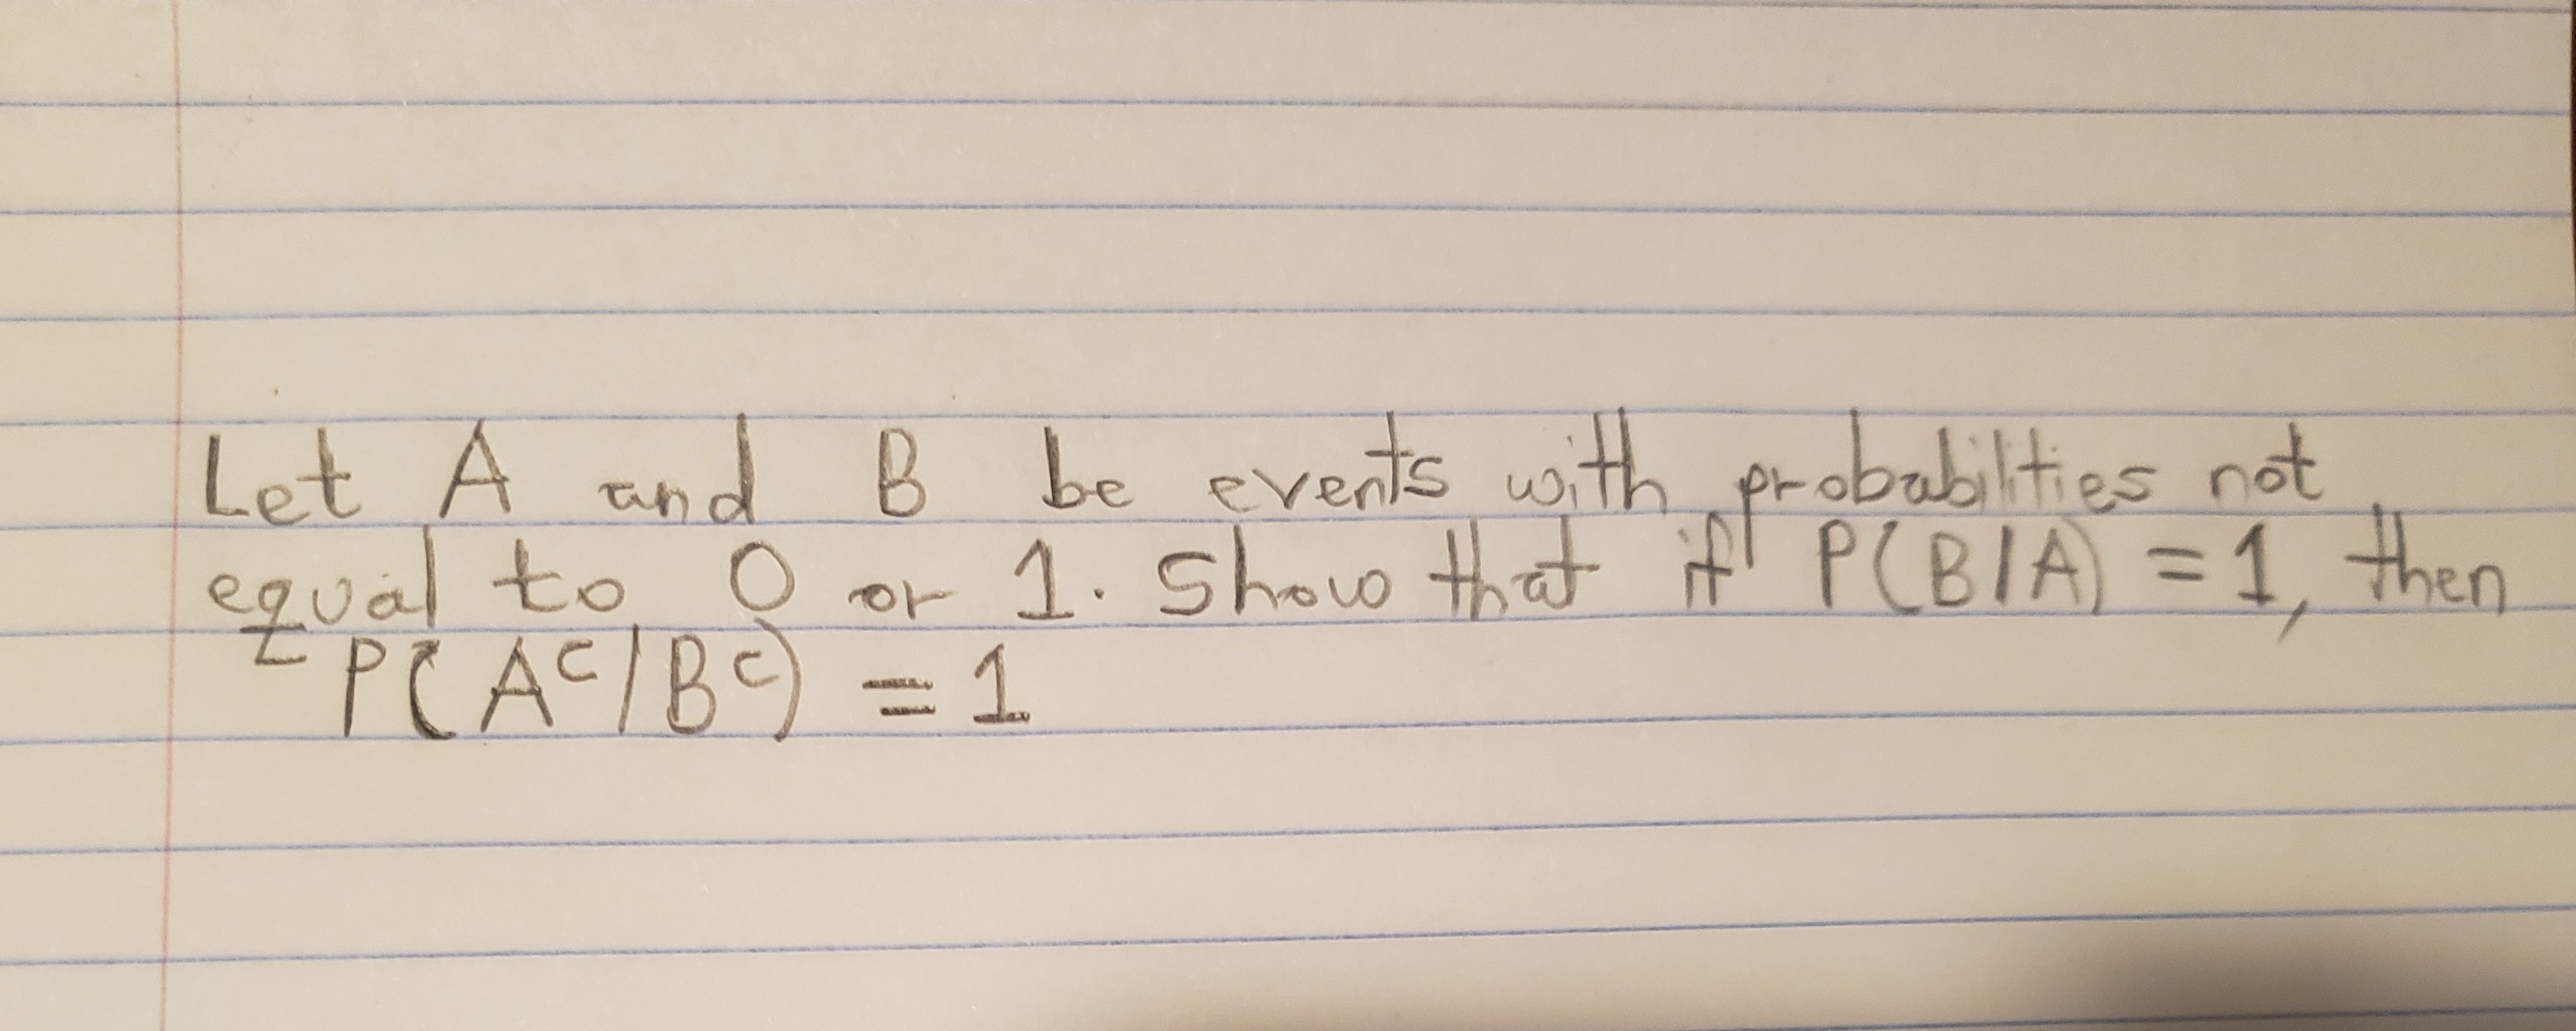 Let A and B be events with probabilities not
equal to 0 or 1. Show that if P(B|A) = 1, then
P(Aᶜ|Bᶜ) = 1